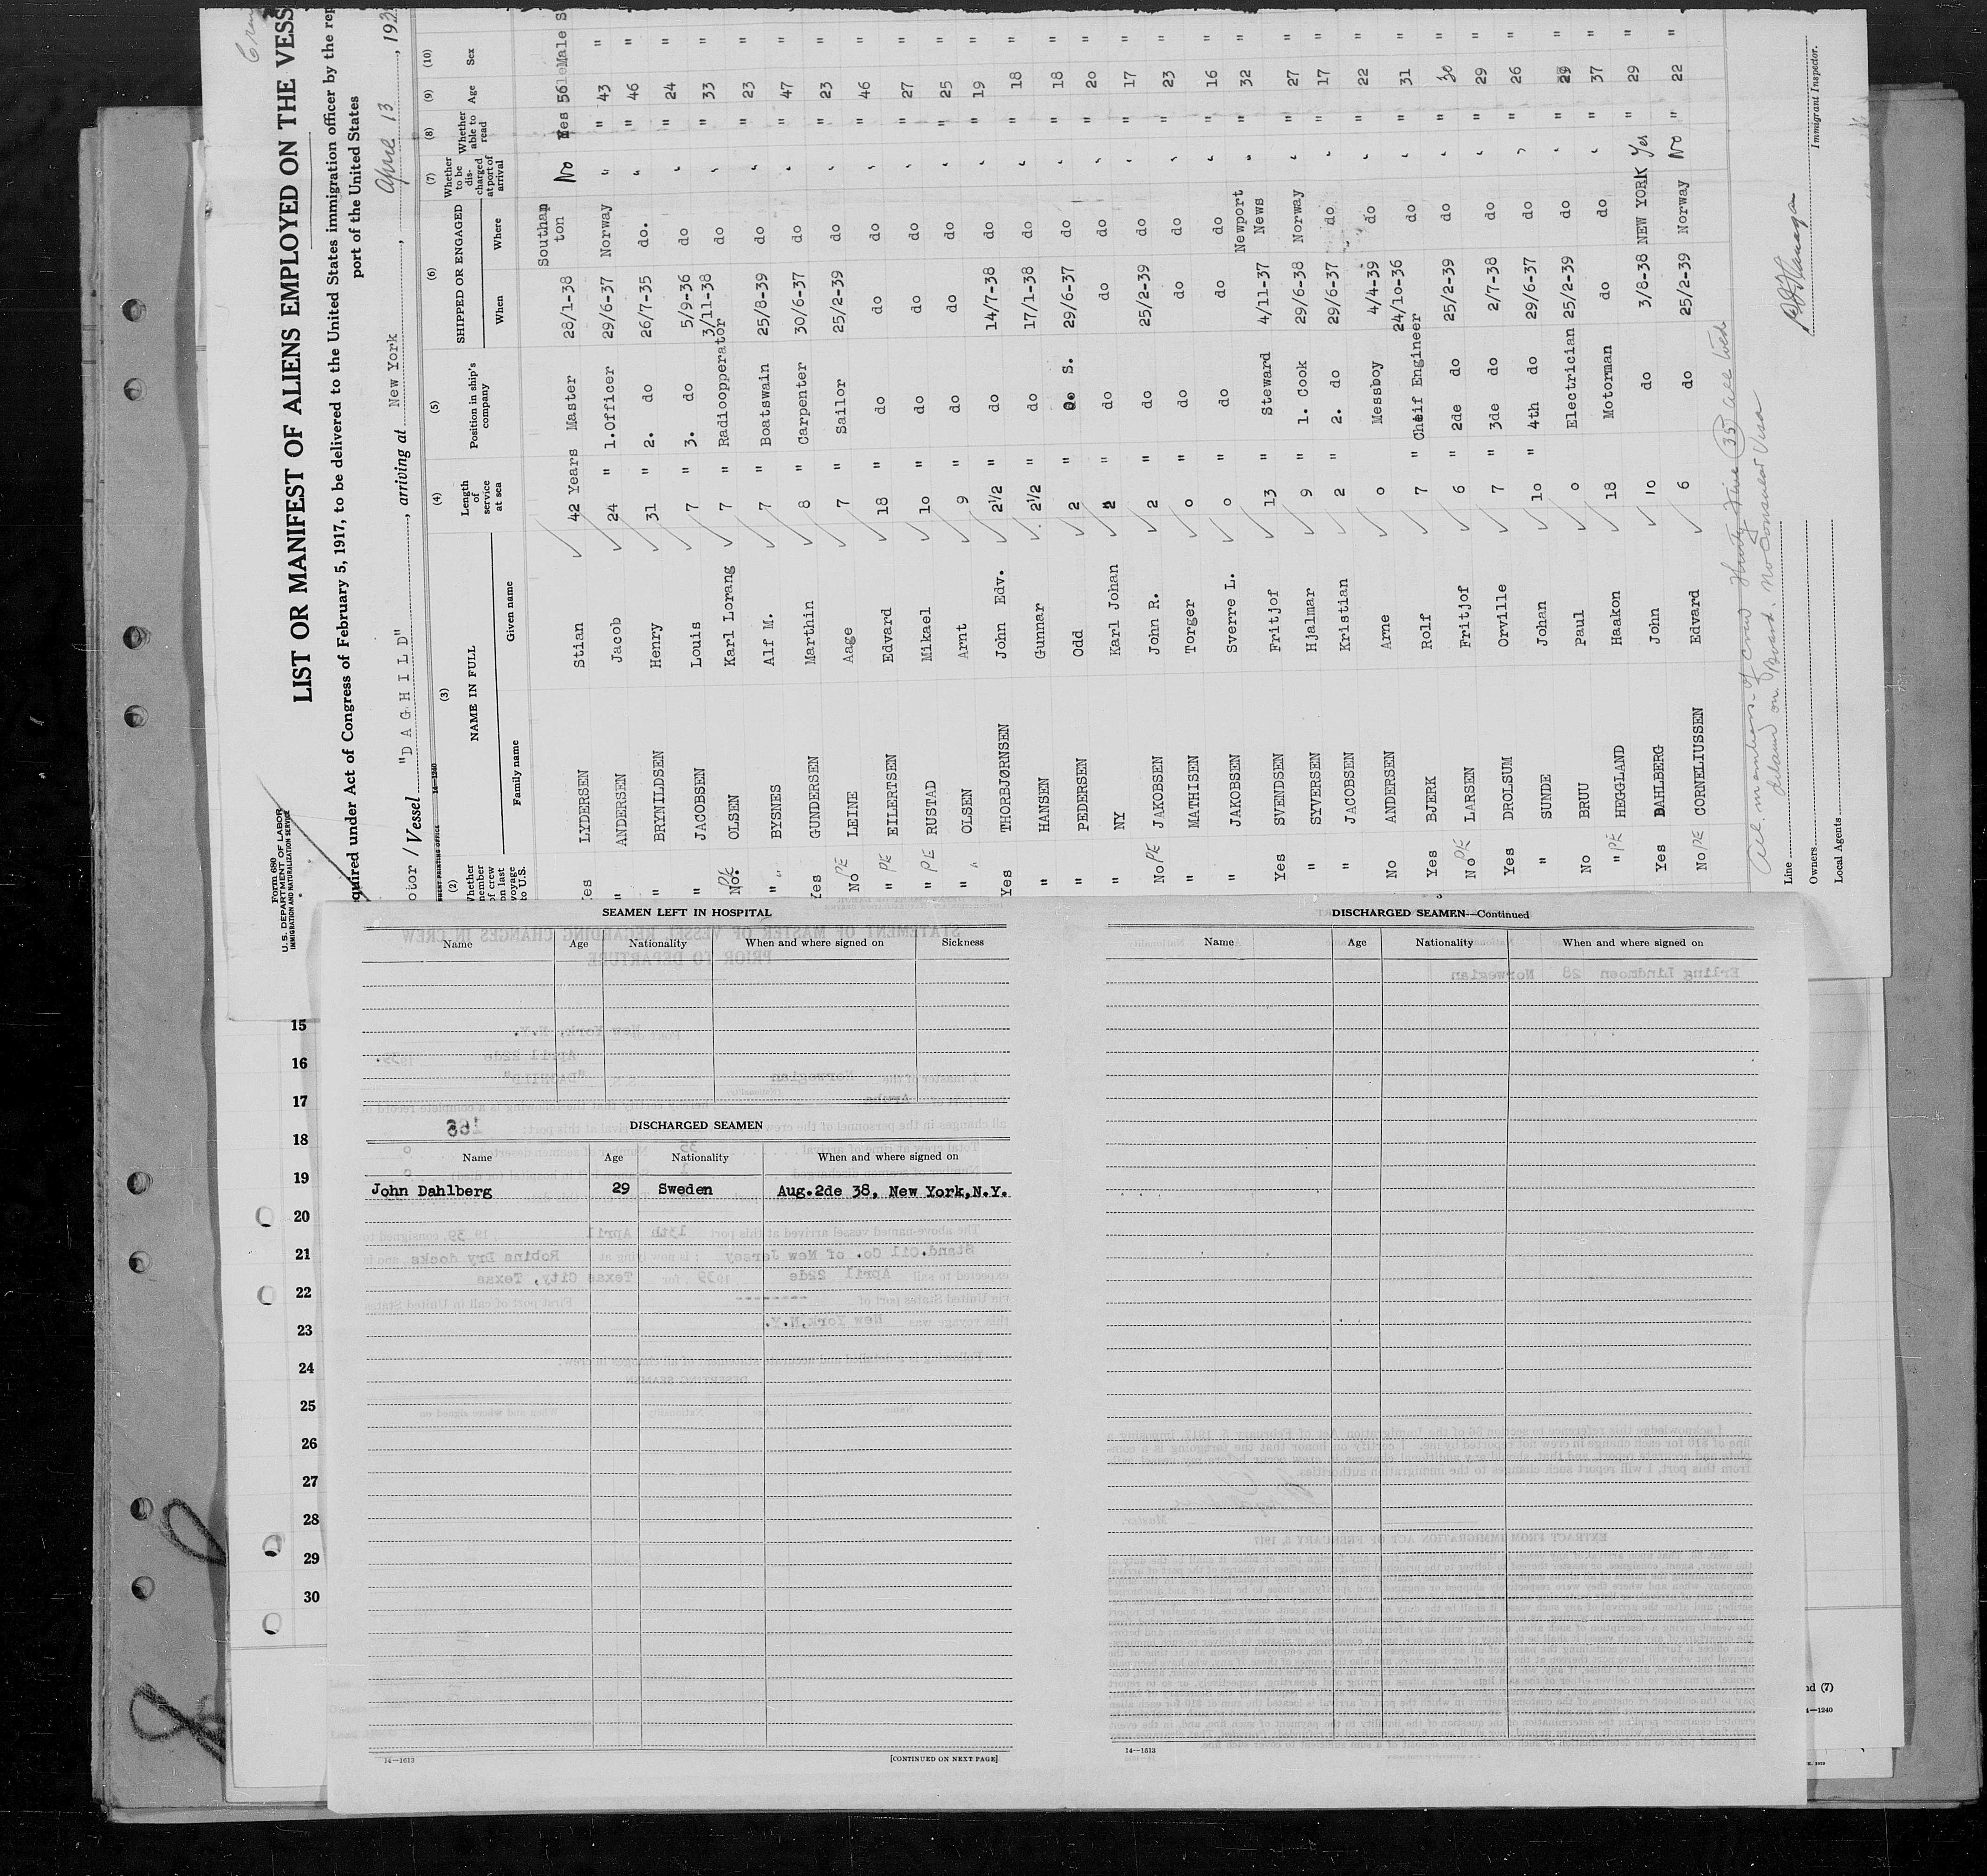 Form 680
U. S. DEPARTMENT OF LABOR
IMMIGRATION AND NATURALIZATION SERVICE
LIST OR MANIFEST OF ALIENS EMPLOYED ON THE VESS
quired under Act of Congress of February 5, 1917, to be delivered to the United States immigration officer by the rep
port of the United States
otor / Vessel "D A G H I L D", arriving at New York, April 13, 193
(2) (3) (4) (5) (6) (7) (8) (9) (10)
Whether member of crew on last voyage to U.S.
NAME IN FULL
Family name Given name
Length of service at sea
Position in ship's company
SHIPPED OR ENGAGED
When Where
Whether to be discharged at port of arrival
Whether able to read
Age Sex
Yes LYDERSEN Stian 42 Years Master 28/1-38 Southampton No Yes 56 Male
" ANDERSEN Jacob 24 " 1.Officer 29/6-37 Norway " " 43 "
" BRYNILDSEN Henry 31 " 2. do 26/7-35 do. " " 46 "
" JACOBSEN Louis 7 " 3. do 5/9-36 do " " 24 "
No. PE OLSEN Karl Lorang 7 " Radioopperator 3/11-38 do " " 33 "
" " BYSNES Alf M. 7 " Boatswain 25/8-39 do " " 23 "
Yes GUNDERSEN Marthin 8 " Carpenter 30/6-37 do " " 47 "
No PE LEINE Aage 7 " Sailor 25/2-39 do " " 23 "
" PE EILERTSEN Edvard 18 " do do do " " 46 "
" PE RUSTAD Mikael 10 " do do do " " 27 "
" " OLSEN Arnt 9 " do do do " " 25 "
Yes THORBJØRNSEN John Edv. 2½ " do 14/7-38 do " " 19 "
" HANSEN Gunnar 2½ " do 17/1-38 do " " 18 "
" PEDERSEN Odd 2 " O. S. 29/6-37 do " " 18 "
" NY Karl Johan 2 " do do do " " 20 "
No PE JAKOBSEN John R. 2 " do 25/2-39 do " " 17 "
" MATHISEN Torger 0 " do do do " " 23 "
" JAKOBSEN Sverre L. 0 " do do do " " 16 "
Yes SVENDSEN Fritjof 13 " Steward 4/11-37 Newport News " " 32 "
" SYVERSEN Hjalmar 9 " 1. Cook 29/6-38 Norway " " 27 "
" JACOBSEN Kristian 2 " 2. do 29/6-37 do " " 17 "
No ANDERSEN Arne 0 Messboy 4/4-39 do " " 22 "
Yes BJERK Rolf 7 " Cheif Engineer 24/10-36 do " " 31 "
No PE LARSEN Fritjof 6 " 2de do 25/2-39 do " " 30 "
Yes DROLSUM Orville 7 " 3de do 2/7-38 do " " 29 "
" SUNDE Johan 10 " 4th do 29/6-37 do " " 26
No BRUU Paul 0 Electrician 25/2-39 do " " 29 "
" PE HEGGLAND Haakon 18 " Motorman do do " " 37 "
Yes DAHLBERG John 10 " do 3/8-38 NEW YORK Yes " 29 "
No PE CORNELIUSSEN Edvard 6 " do 25/2-39 Norway No " 22 "
All members of crew thirty five (35) all
on Board. No Consular Visa
Immigrant Inspector.
Line
Owners
Local Agents
15
16
17
18
19
20
21
22
23
24
25
26
27
28
29
30
SEAMEN LEFT IN HOSPITAL
Name Age Nationality When and where signed on Sickness
DISCHARGED SEAMEN
Name Age Nationality When and where signed on
John Dahlberg 29 Sweden Aug.2de 38, New York,N.Y.
14—1613 [CONTINUED ON NEXT PAGE]
DISCHARGED SEAMEN—Continued
Name Age Nationality When and where signed on
Erling Lindmoen 28 Norwegian
14—1613
nd (7)
4—1240